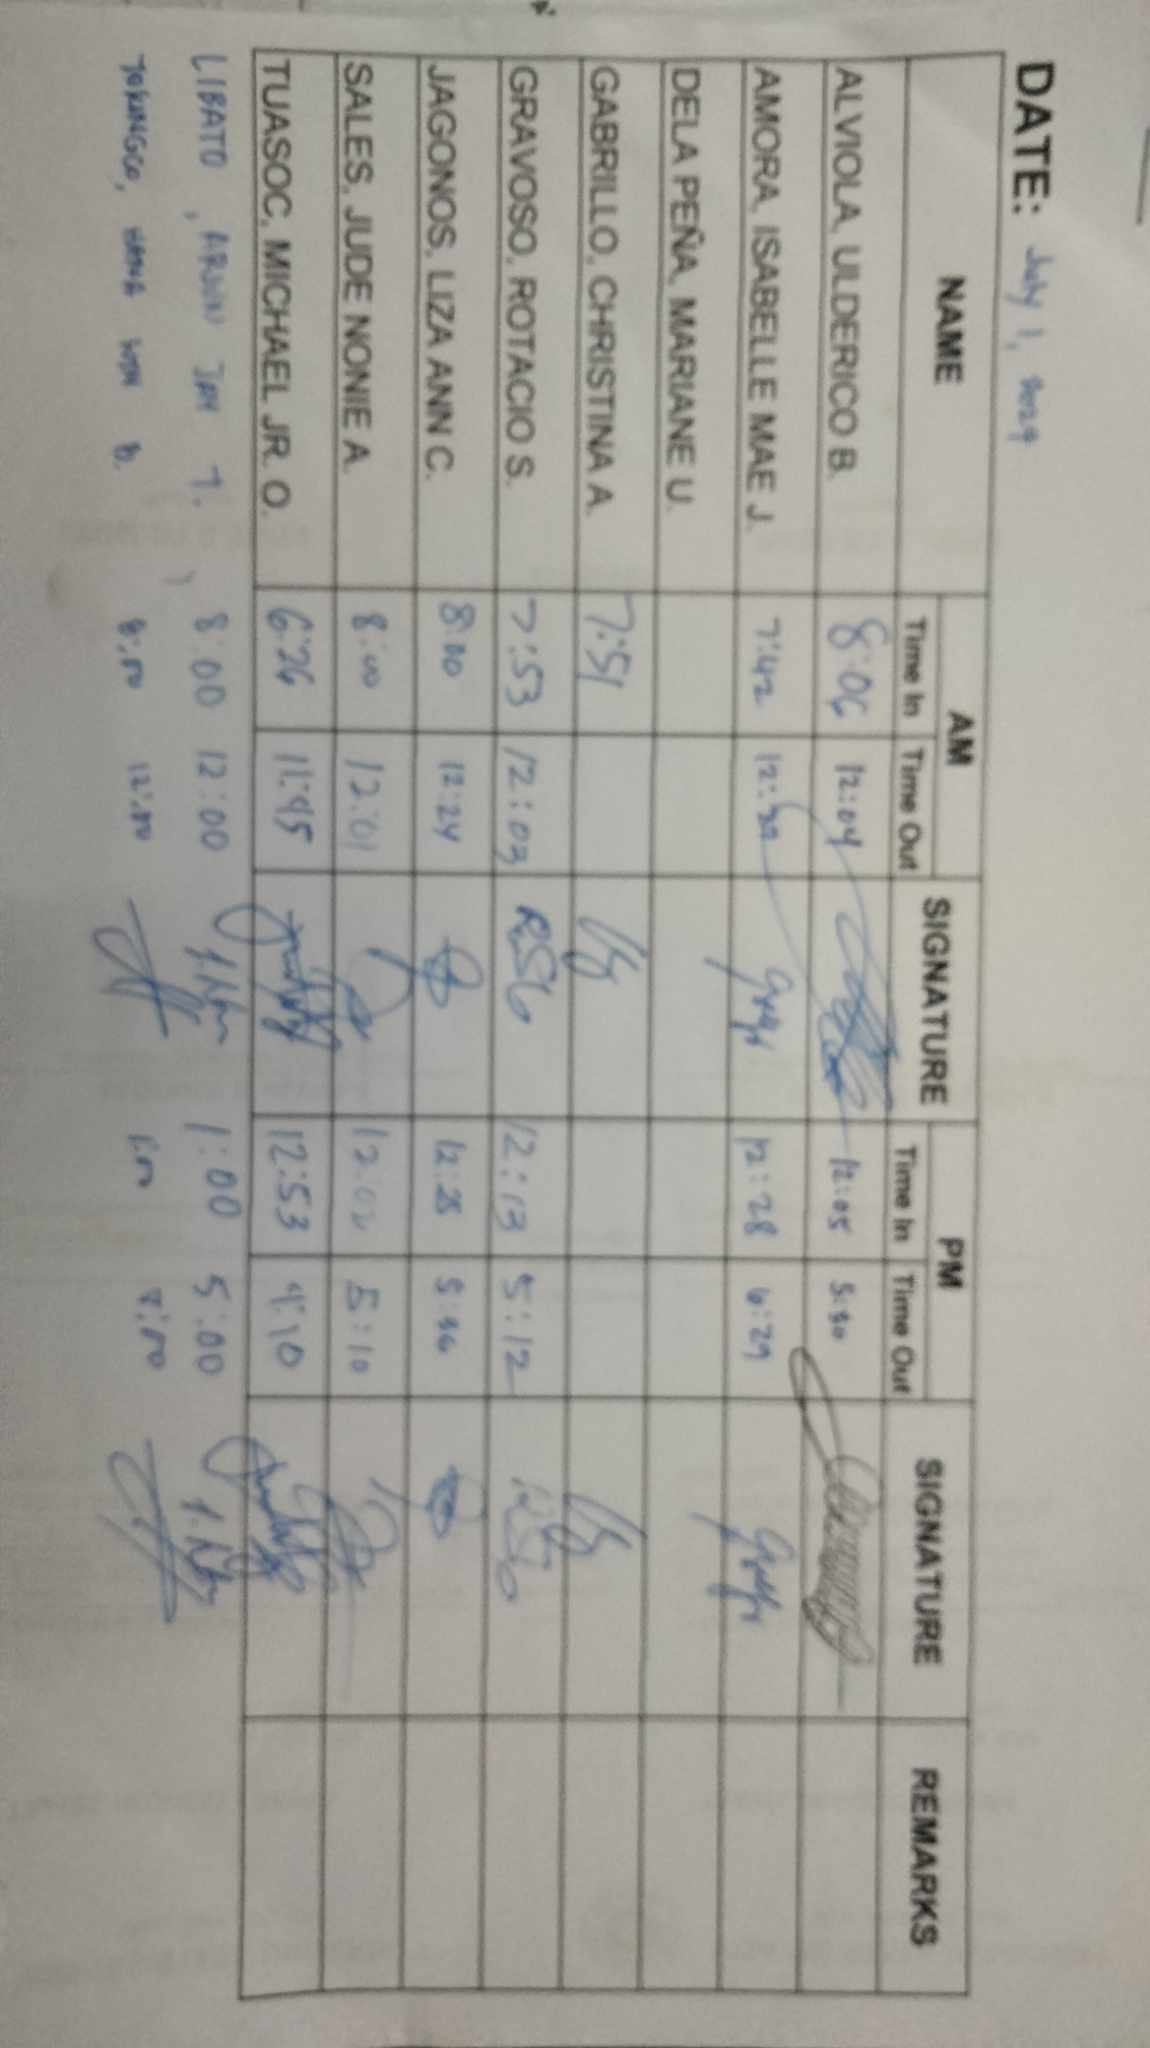 DATE: July 1, 2024
NAME AM SIGNATURE PM SIGNATURE REMARKS
Time In Time Out Time In Time Out
ALVIOLA, ULDERICO B. 8:06 12:04 12:05 5:30
AMORA, ISABELLE MAE J. 7:42 12:28 6:29
DELA PEÑA, MARIANE U.
GABRILLO, CHRISTINA A. 7:51
GRAVOSO, ROTACIO S. 7:53 12:03 12:13 5:12
JAGONOS, LIZA ANN C. 8:00 12:24 12:25
SALES, JUDE NONIE A. 8:00 12:01 12:02 5:10
TUASOC, MICHAEL JR. O. 6:26 11:45 12:53 4:10
LIBATO, ARWIN JAY T. 8:00 12:00 1:00 5:00
8:00 12:00 1:00